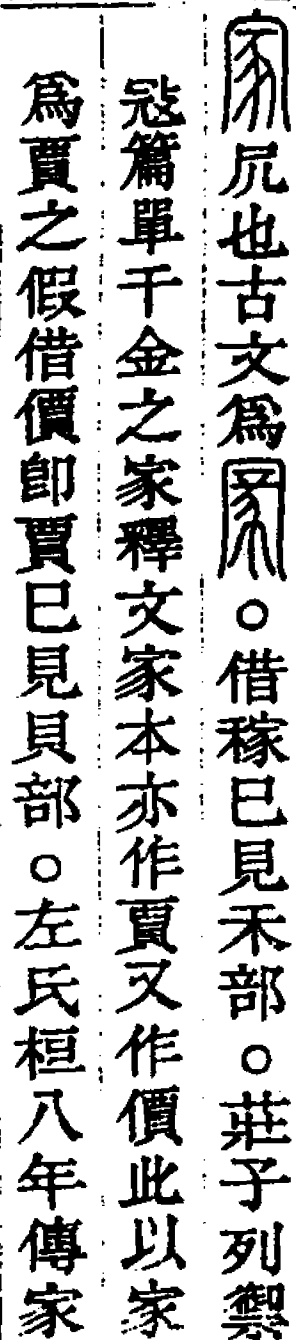 家凥也古文爲𠖔。借稼巳見禾部。莊子列禦
㓂篇單千金之家釋文家本亦作賈又作價此以家
爲賈之假借價卽賈巳見貝部。左氏桓八年傳家